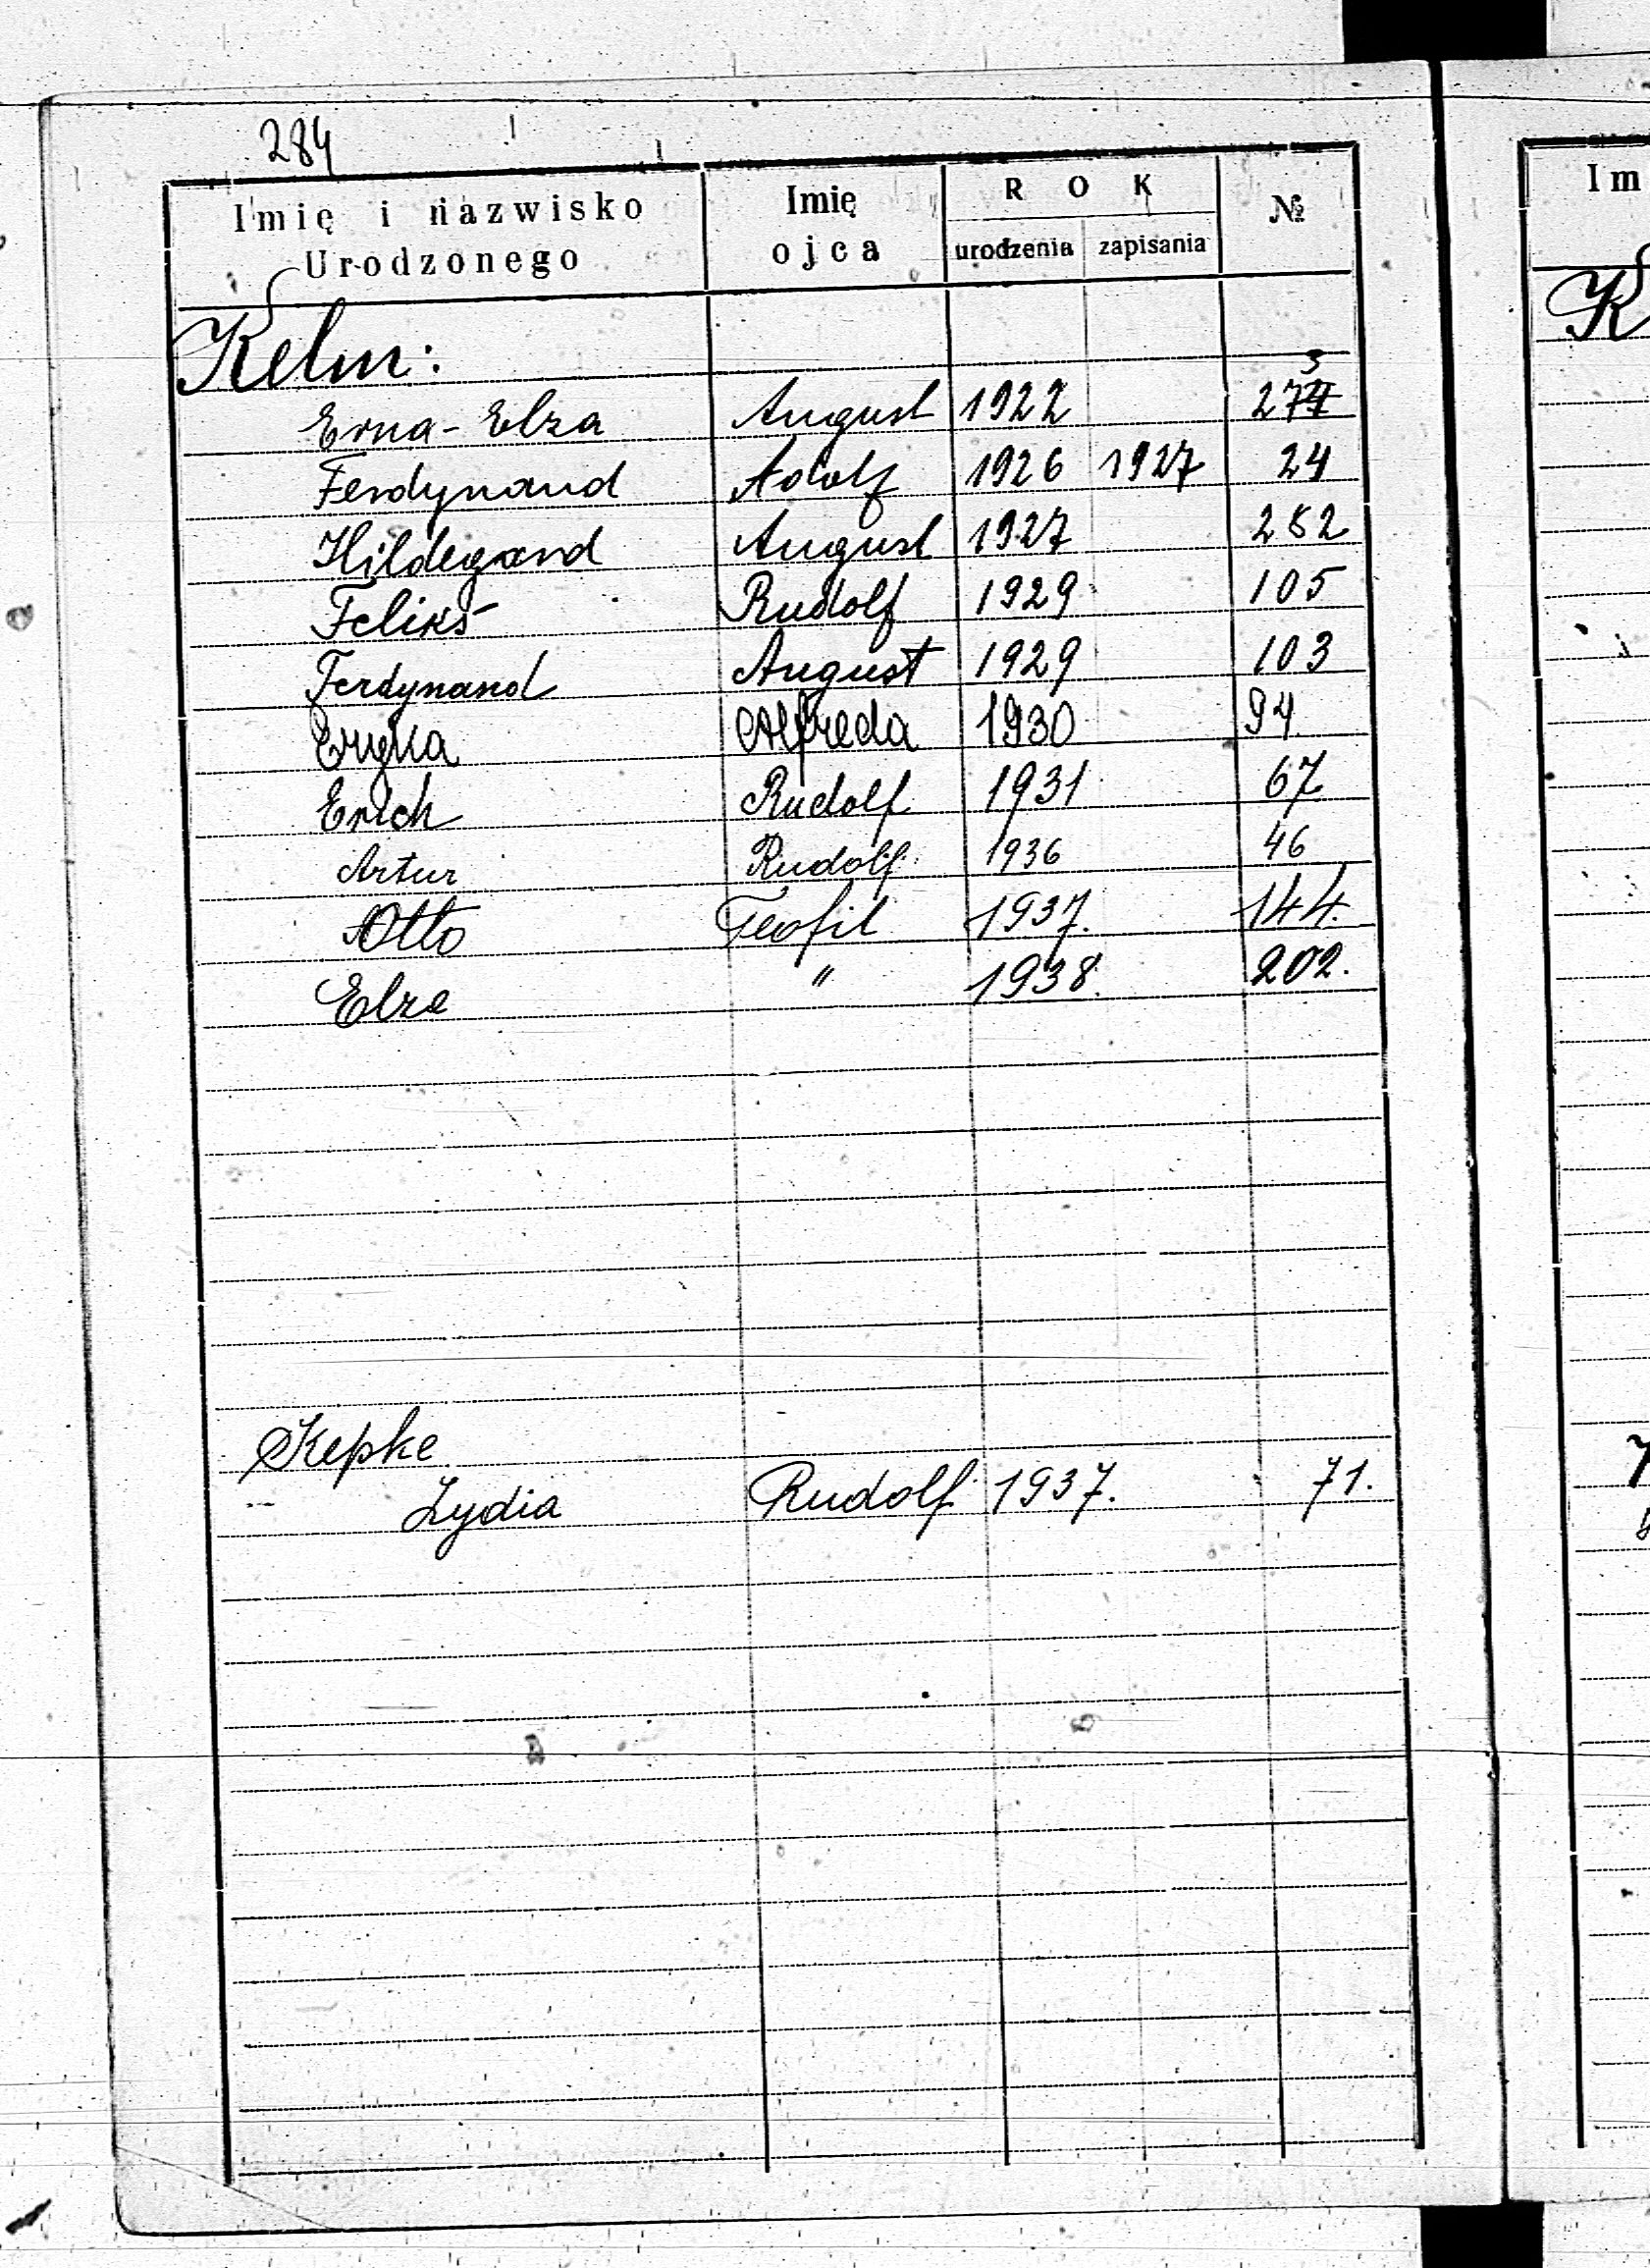 284
Imię i nazwisko Urodzonego Imię ojca ROK urodzenia zapisania №
Kelm:
Erna-Elza August 1922 273
Ferdynand Adolf 1926 1927 24
Hildegard August 1927 282
Feliks Rudolf 1929 105
Ferdynand August 1929 103
Eryka Alfreda 1930 94
Erich Rudolf 1931 67
Artur Rudolf 1936 46
Otto Teofil 1937. 144.
Elza " 1938. 202.
Kepke
Lydia Rudolf 1937. 71.
Im
K